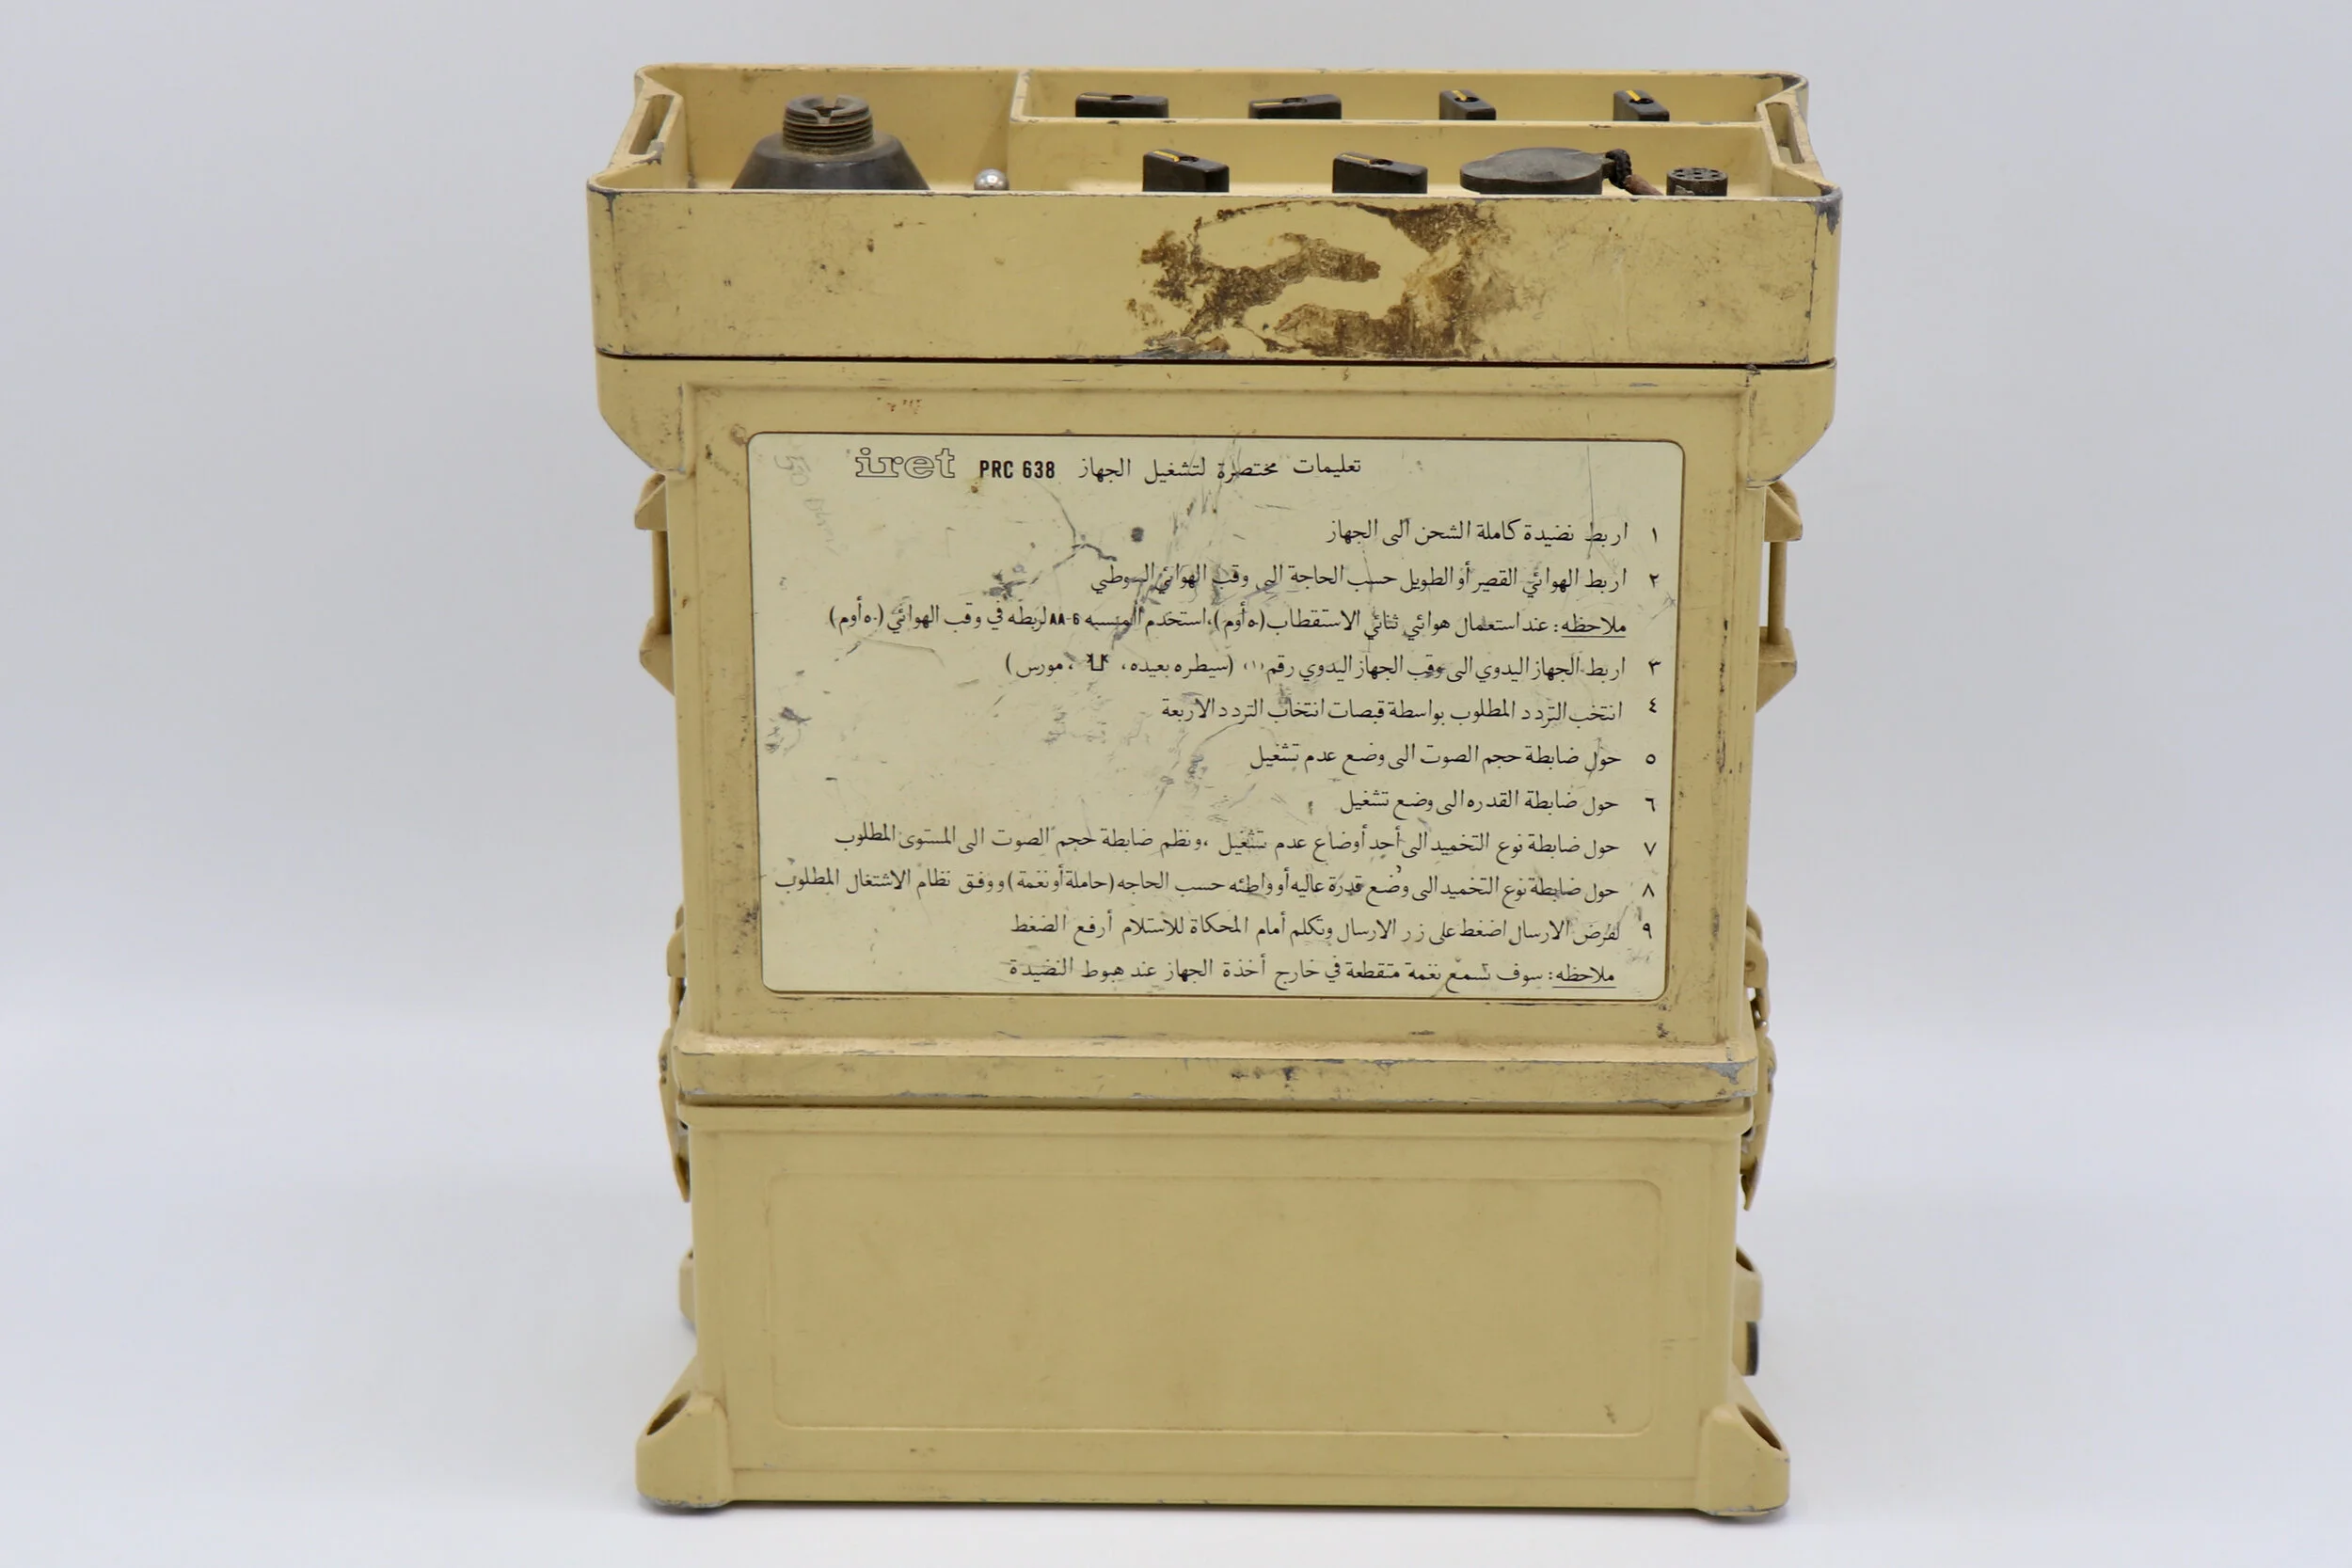 تعليمات مختصرة لتشغيل الجهاز PRC 638 iret
١ اربط نضيدة كاملة الشحن الى الجهاز
٢ اربط الهوائي القصير أو الطويل حسب الحاجة الى وقب الهوائي السوطي
ملاحظه: عند استعمال هوائي ثنائي الاستقطاب (٥٠أوم)، استخدم AA-6 لربطه في وقب الهوائي (٥٠أوم)
٣ اربط الجهاز اليدوي الى وقب الجهاز اليدوي رقم (١) (سيطره بعيده، ، مورس)
٤ انتخب التردد المطلوب بواسطة قبصات انتخاب التردد الاربعة
٥ حول ضابطة حجم الصوت الى وضع عدم تشغيل
٦ حول ضابطة القدره الى وضع تشغيل
٧ حول ضابطة نوع التخميد الى أحد أوضاع عدم تشغيل ، ونظم ضابطة حجم الصوت الى المستوى المطلوب
٨ حول ضابطة نوع التخميد الى وضع قدرة عاليه أو واطئه حسب الحاجه (حاملة أو نغمة) ووفق نظام الاشتغال المطلوب
٩ لغرض الارسال اضغط على زر الارسال وتكلم أمام المحكاة للاستلام أرفع الضغط
ملاحظه: سوف تسمع نغمة متقطعة في خارج أخذة الجهاز عند هبوط النضيدة